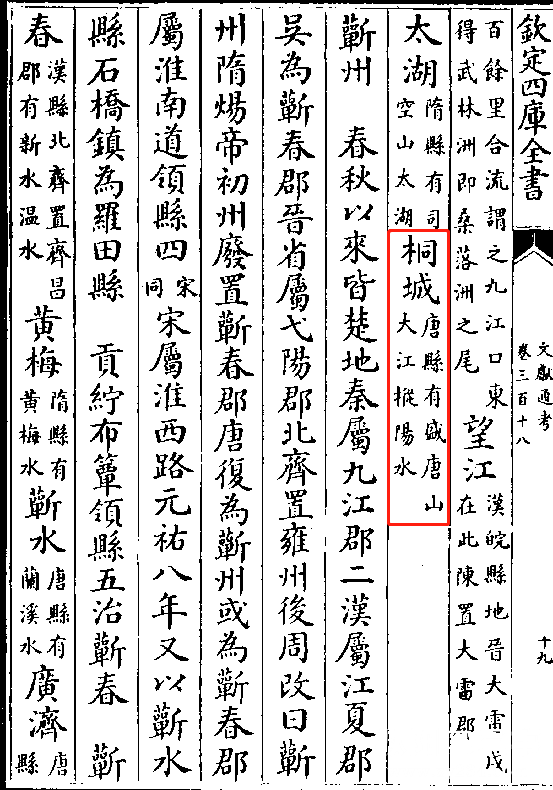 欽定四庫全書
文獻通考
卷三百十八
十九
百餘里合流謂之九江口東
得武林洲即桑落洲之尾
望江
漢皖縣地晉大雷戍
在此陳置大雷郡
太湖
隋縣有司
空山太湖
桐城
唐縣有盛唐山
大江樅陽水
蘄州 春秋以來皆楚地秦屬九江郡二漢屬江夏郡
吳為蘄春郡晉省屬弋陽郡北齊置雍州後周改曰蘄
州隋煬帝初州廢置蘄春郡唐復為蘄州或為蘄春郡
屬淮南道領縣四
宋
同
宋屬淮西路元祐八年又以蘄水
縣石橋鎮為羅田縣 貢紵布簟領縣五治蘄春 蘄
春
漢縣北齊置齊昌
郡有新水溫水
黃梅
隋縣有
黃梅水
蘄水
唐縣有
蘭溪水
廣濟
唐
縣